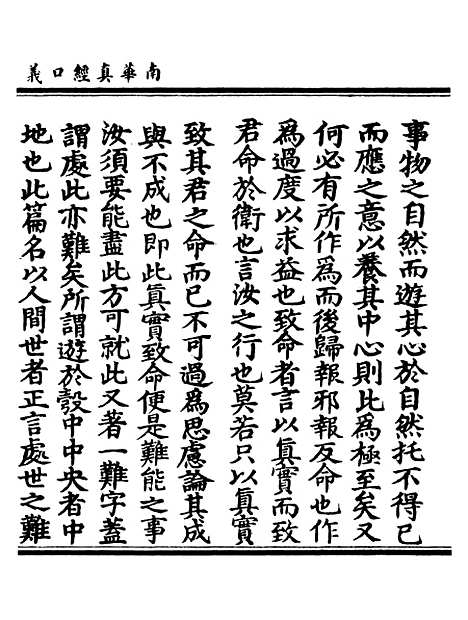 南華真經口義
事物之自然而遊其心於自然托不得已
而應之意以養其中心則此為極至矣又
何必有所作為而後歸報邪報反命也作
為過度以求益也致命者言以真實而致
君命於衛也言汝之行也莫若只以真實
致其君之命而已不可過為思慮論其成
與不成也即此真實致命便是難能之事
汝須要能盡此方可就此又著一難字蓋
謂處此亦難矣所謂遊於彀中中央者中
地也此篇名以人間世者正言處世之難